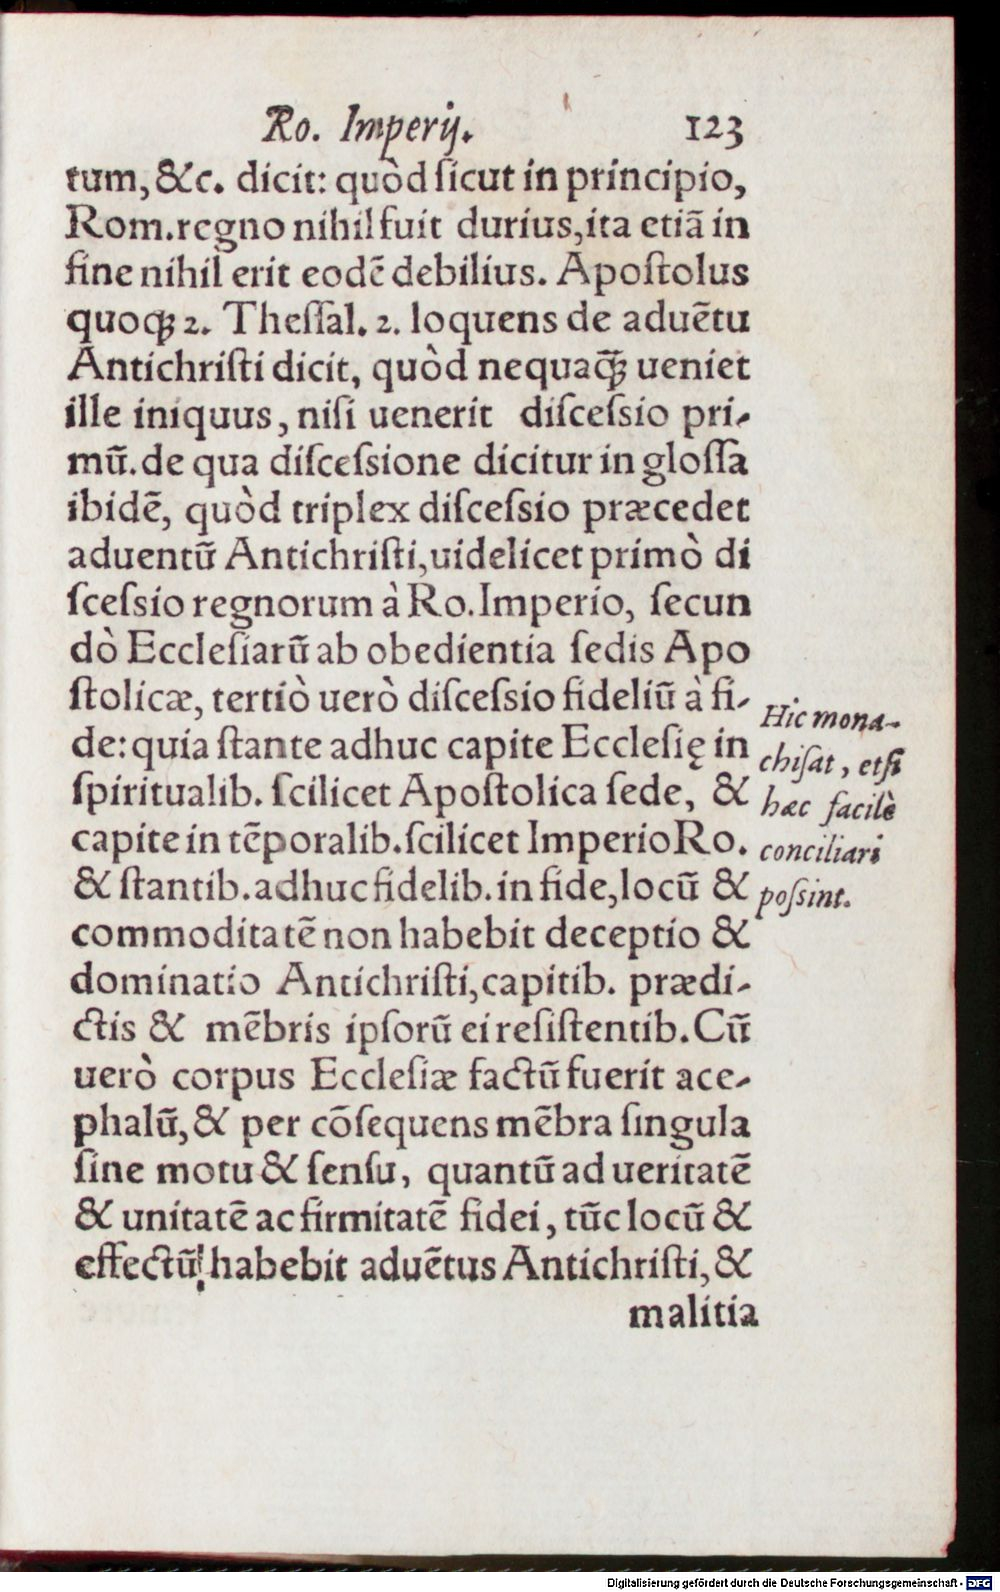 Ro. Imperij. 123
tum, &c. dicit: quòd ſicut in principio,
Rom. regno nihil fuit durius, ita etiã in
fine nihil erit eodẽ debilius. Apoſtolus
quoqꝫ 2. Theſſal. 2. loquens de aduẽtu
Antichriſti dicit, quòd nequaq̃ꝫ ueniet
ille iniquus, niſi uenerit diſceſsio pri-
mũ. de qua diſceſsione dicitur in gloſſa
ibidẽ, quòd triplex diſceſsio præcedet
aduentũ Antichriſti, uidelicet primò di
ſceſsio regnorum à Ro. Imperio, ſecun
dò Eccleſiarũ ab obedientia ſedis Apo
ſtolicæ, tertiò uerò diſceſsio fideliũ à fi-
de: quia ſtante adhuc capite Eccleſię in
ſpiritualib. ſcilicet Apoſtolica ſede, &
capite in tẽporalib. ſcilicet Imperio Ro.
& ſtantib. adhuc fidelib. in fide, locũ &
commoditatẽ non habebit deceptio &
dominatio Antichriſti, capitib. prædi-
ctis & mẽbris ipſorũ ei reſiſtentib. Cũ
uerò corpus Eccleſiæ factũ fuerit ace-
phalũ, & per cõſequens mẽbra ſingula
ſine motu & ſenſu, quantũ ad ueritatẽ
& unitatẽ ac firmitatẽ fidei, tũc locũ &
effectũ habebit aduẽtus Antichriſti, &
malitia
Hic mona-
chiſat, etſi
hæc facilè
conciliari
poſsint.
Digitalisierung gefördert durch die Deutsche Forschungsgemeinschaft - DFG